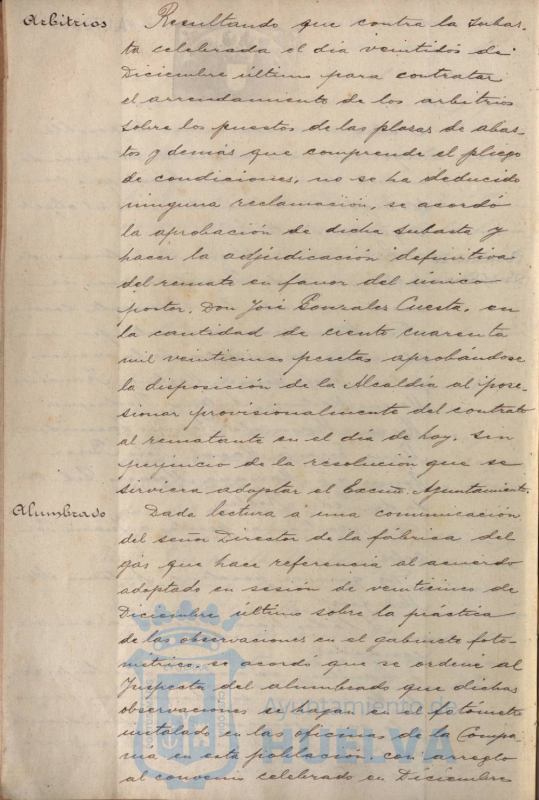 Arbitrios
Resultando que contra la subas-
ta celebrada el dia veintidos de
Diciembre último para contratar
el arrendamiento de los arbitrios
sobre los puestos de las plazas de abas-
tos y demás que comprende el pliego
de condiciones, no se ha deducido
ninguna reclamación, se acordó
la aprobación de dicha subasta y
hacer la adjudicación definitiva
del remate en favor del único
postor, Don José Gonzales Cuesta, en
la cantidad de ciento cuarenta
mil veinticinco pesetas aprobándose
la disposición de la Alcaldía al pose-
sionar provisionalmente del contrato
al rematante en el día de hoy, sin
perjuicio de la resolución que se
sirviera adoptar el Excmo. Ayuntamiento.
Alumbrado
Dada lectura á una comunicación
del señor Director de la fábrica del
gás que hace referencia al acuerdo
adoptado en sesión de veinticinco de
Diciembre último sobre la práctica
de las observaciones en el gabinete foto-
métrico, se acordó que se ordene al
Inspector del alumbrado que dichas
observaciones se hagan en el fotómetro
instalado en las oficinas de la Compa-
ñia en esta población, con arreglo
al convenio celebrado en Diciembre
Ayuntamiento de
HUELVA